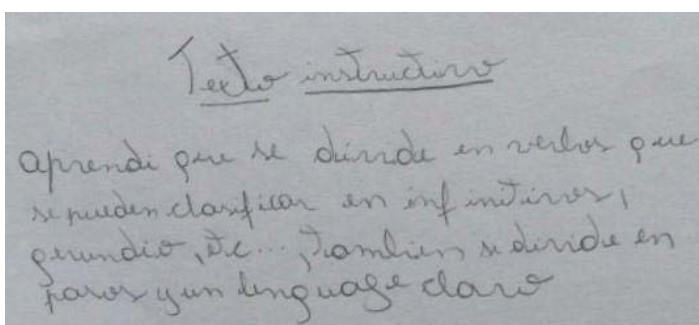 Texto instructivo
Aprendi que se divide en verbos que
se pueden clasificar en infinitivos,
gerundio, etc..., tambien se divide en
pasos y un lenguage claro